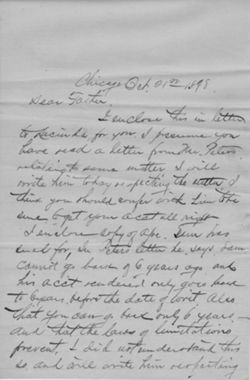 Chicago Oct. 31st 1898
Dear Father
I enclose this in letter
to Lucinda for you, I presume you
have read a letter from Mr. Peters
relating to same matter I will
write him today respecting the matter I
think you should confer with him the
same to get your acct all right
I enclose copy of
for, In Peters letter he says
cannot go back of 6 years ago and
his acct rendered only goes back
to 6 years, before the date of
that you can go back only 6 years,
and that the laws of limitations
prevent, I did not understand this
is so and will write him respecting